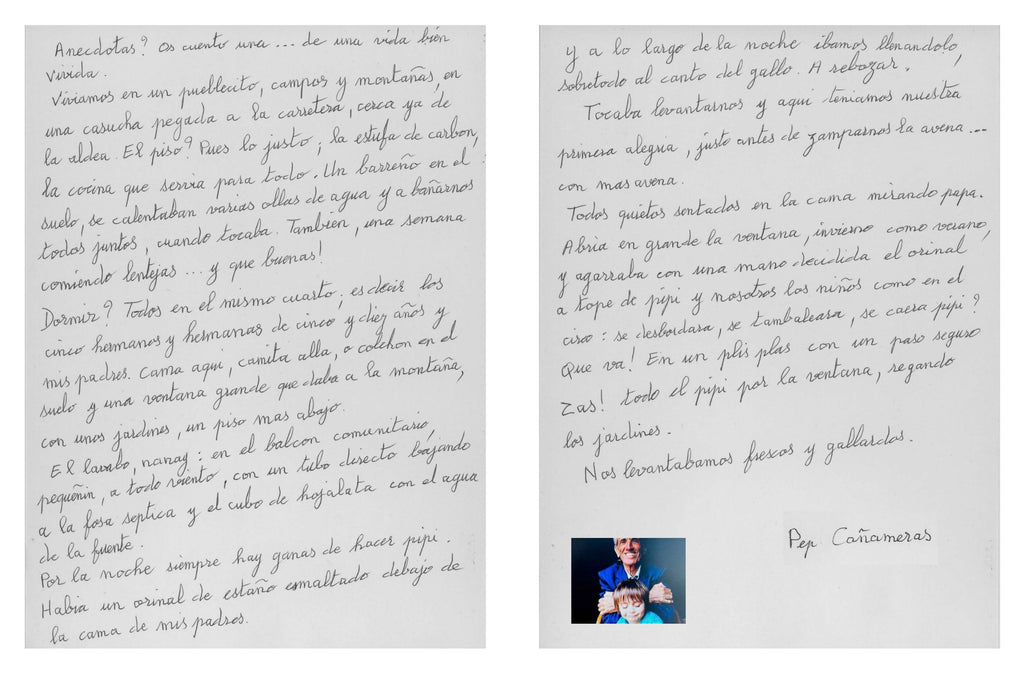 Anecdotas? Os cuento una... de una vida bien
vivida.
Viviamos en un pueblecito, campos y montañas, en
una casucha pegada a la carretera, cerca ya de
la aldea. El piso? Pues lo justo; la estufa de carbon,
la cocina que servia para todo. Un barreño en el
suelo, se calentaban varias ollas de agua y a bañarnos
todos juntos, cuando tocaba. Tambien, una semana
comiendo lentejas... y que buenas!
Dormir? Todos en el mismo cuarto, es decir los
cinco hermanos y hermanas de cinco y diez años y
mis padres. Cama aqui, camita alla, o colchon en el
suelo y una ventana grande que daba a la montaña,
con unos jardines, un piso mas abajo.
El lavabo, nanay: en el balcon comunitario,
pequeñin, a todo viento, con un tubo directo bajando
a la fosa septica y el cubo de hojalata con el agua
de la fuente.
Por la noche siempre hay ganas de hacer pipi.
Habia un orinal de estaño esmaltado debajo de
la cama de mis padres.
y a lo largo de la noche ibamos llenandolo,
sobretodo al canto del gallo. A rebozar.
Tocaba levantarnos y aqui teniamos nuestra
primera alegria, justo antes de zamparnos la avena...
con mas avena.
Todos quietos sentados en la cama mirando papa.
Abria en grande la ventana, invierno como verano,
y agarraba con una mano decidida el orinal
a tope de pipi y nosotros los niños como en el
circo: se desbordara, se tambaleara, se caera pipi?
Que va! En un plis plas con un paso seguro
Zas! todo el pipi por la ventana, regando
los jardines.
Nos levantabamos frescos y gallardos.
Pep Cañameras